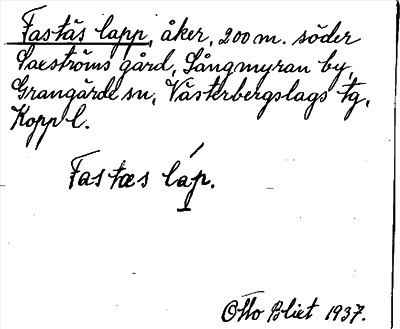 Fastäs lapp, åker, 200 m. söder
Saeströms gård, Sångmyran by,
Grangärde sn, Västerbergslags tg,
Kopp l.
Fastæs láp.
Otto Blixt 1937.